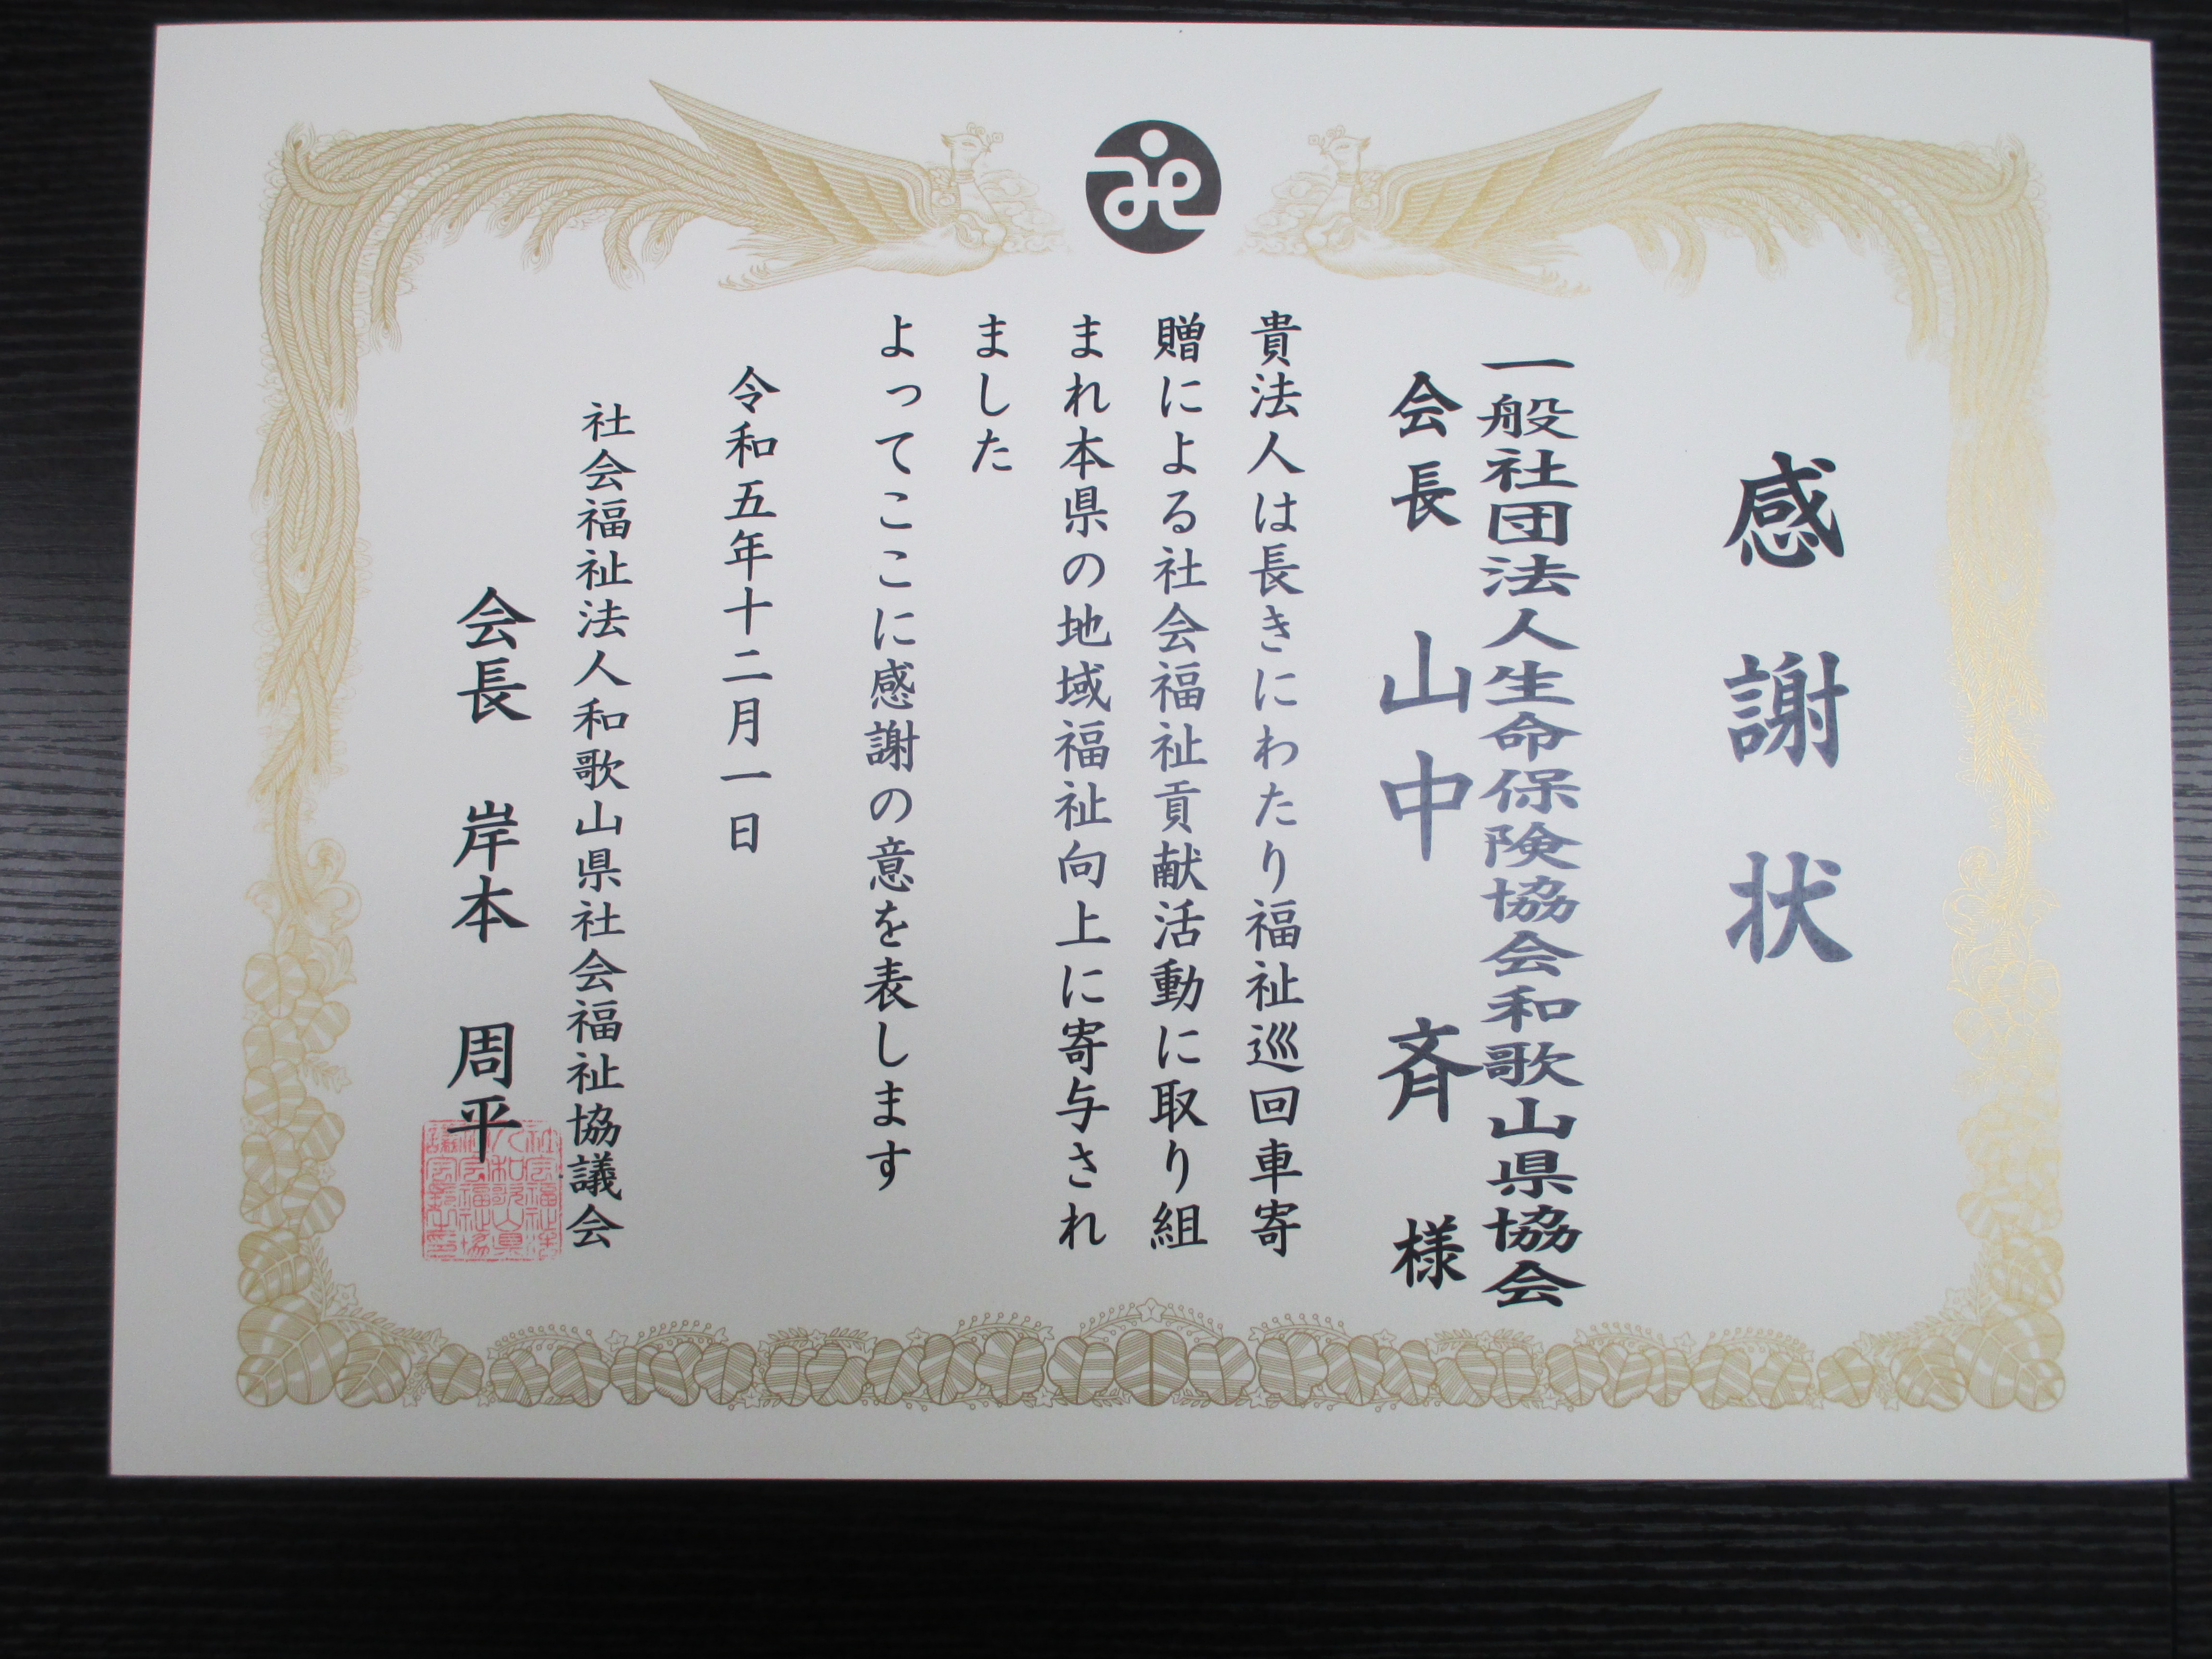 感謝状
一般社団法人生命保険協会和歌山県協会
会長 山中 斉 様
貴法人は長きにわたり福祉巡回車寄
贈による社会福祉貢献活動に取り組
まれ本県の地域福祉向上に寄与され
ました
よってここに感謝の意を表します
令和五年十二月一日
社会福祉法人和歌山県社会福祉協議会
会長 岸本 周平